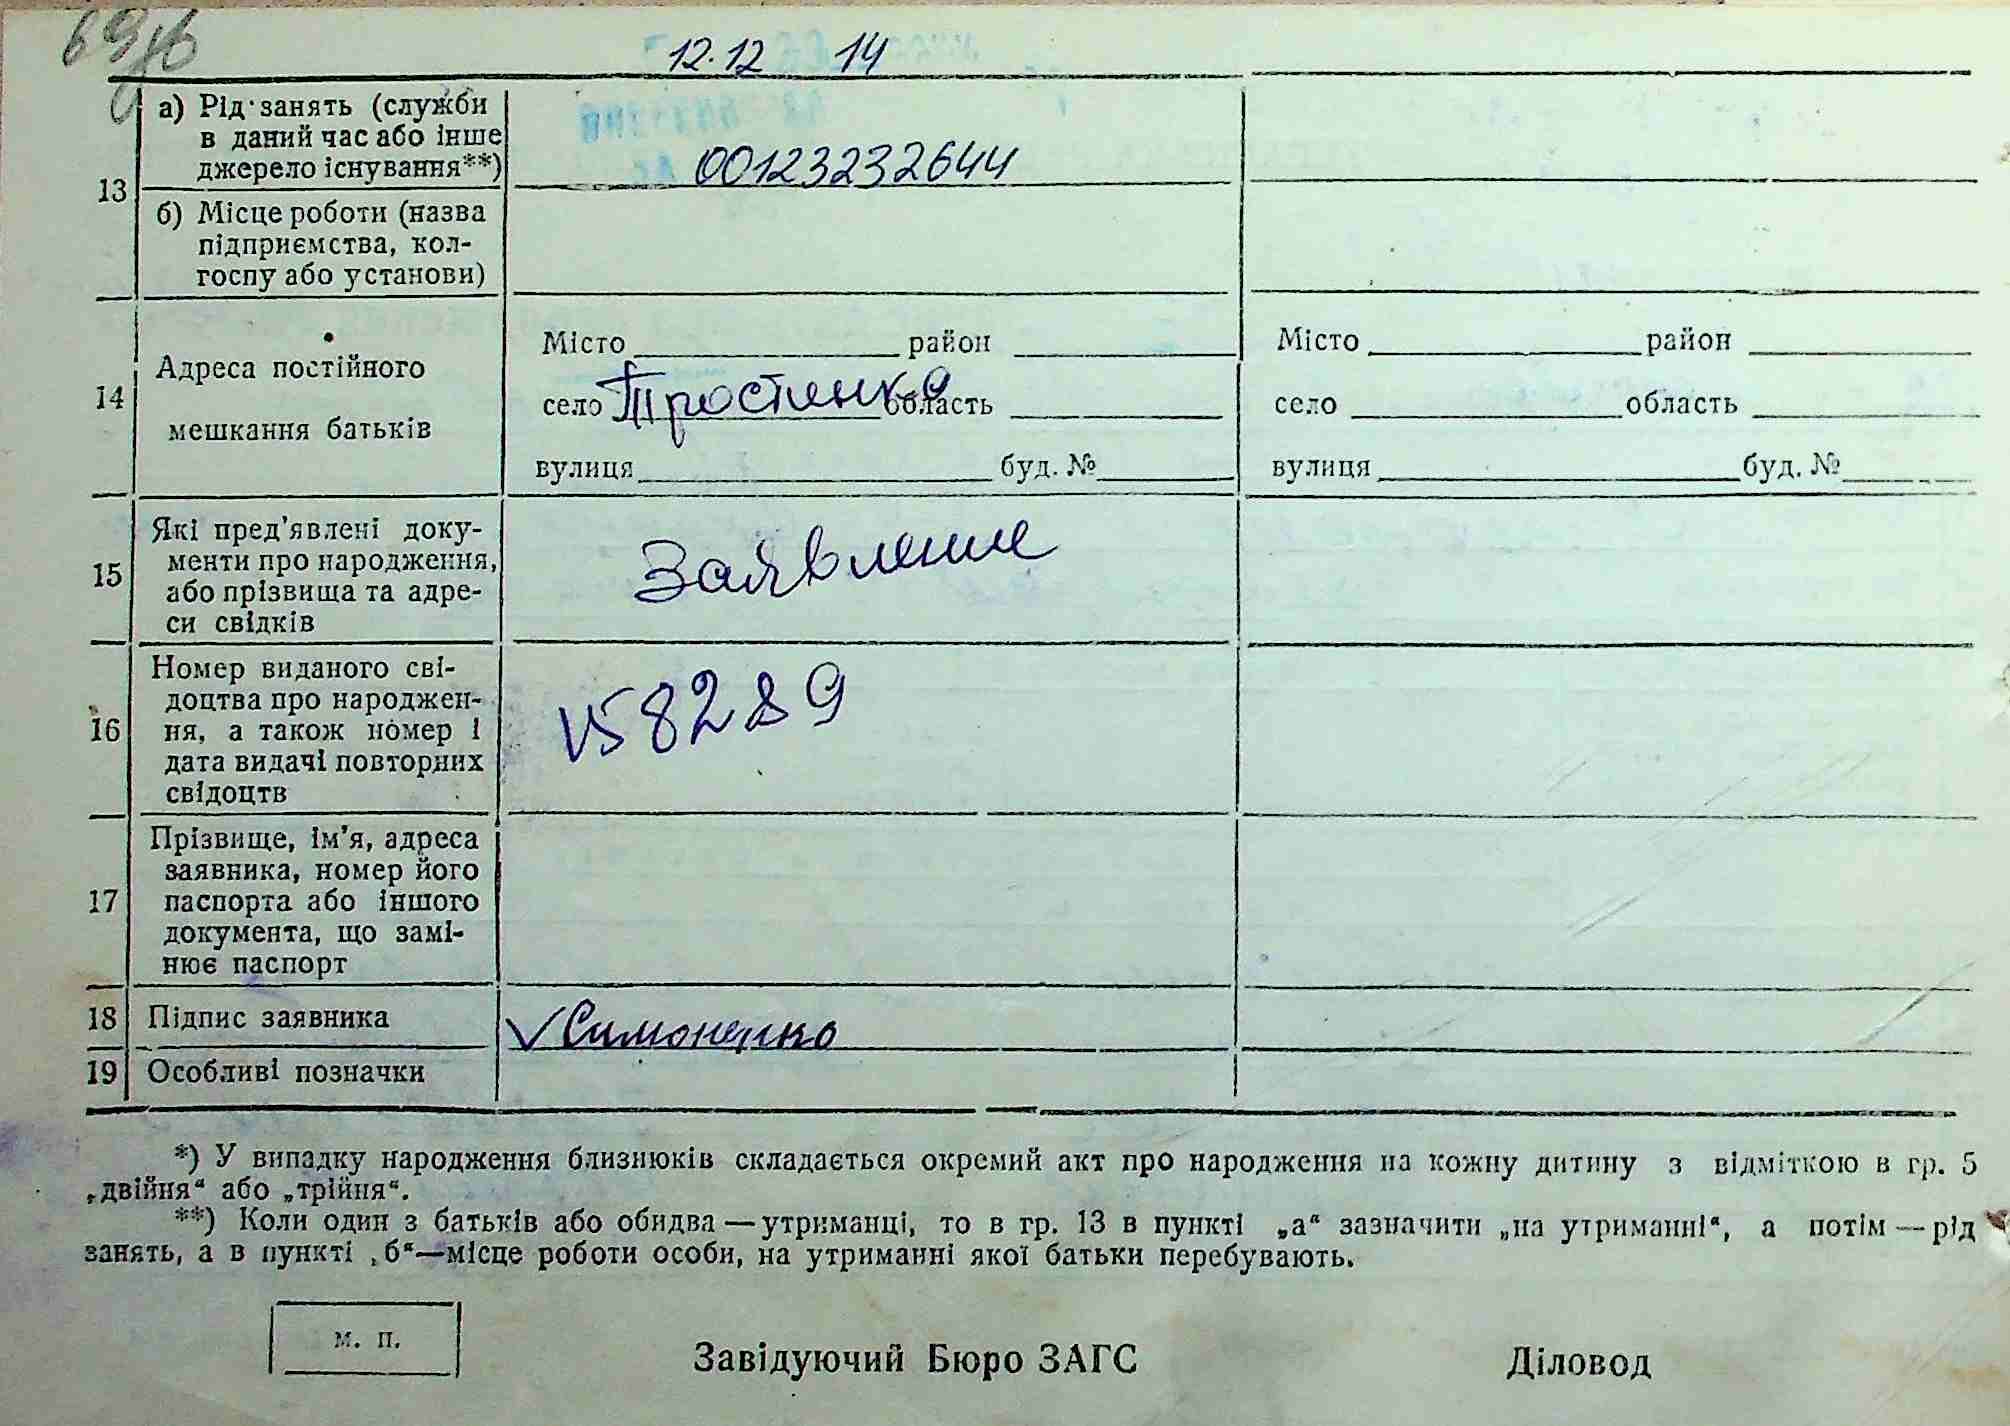 69зв
12.12 14
13
а) Рід занять (служби
в даний час або інше
джерело існування**)
00123232644
б) Місце роботи (назва
підприємства, кол-
госпу або установи)
14
Адреса постійного
мешкання батьків
Місто район
село Тростенка область
вулиця буд. №
Місто район
село область
вулиця буд. №
15
Які пред'явлені доку-
менти про народження,
або прізвища та адре-
си свідків
Заявление
16
Номер виданого сві-
доцтва про народжен-
ня, а також номер і
дата видачі повторних
свідоцтв
V58289
17
Прізвище, ім'я, адреса
заявника, номер його
паспорта або іншого
документа, що замі-
нює паспорт
18
Підпис заявника
Симоненко
19
Особливі позначки
*) У випадку народження близнюків складається окремий акт про народження на кожну дитину з відміткою в гр. 5
„двійня“ або „трійня“.
**) Коли один з батьків або обидва — утриманці, то в гр. 13 в пункті „а“ зазначити „на утриманні“, а потім — рід
занять, а в пункті „б“—місце роботи особи, на утриманні якої батьки перебувають.
м. п.
Завідуючий Бюро ЗАГС
Діловод